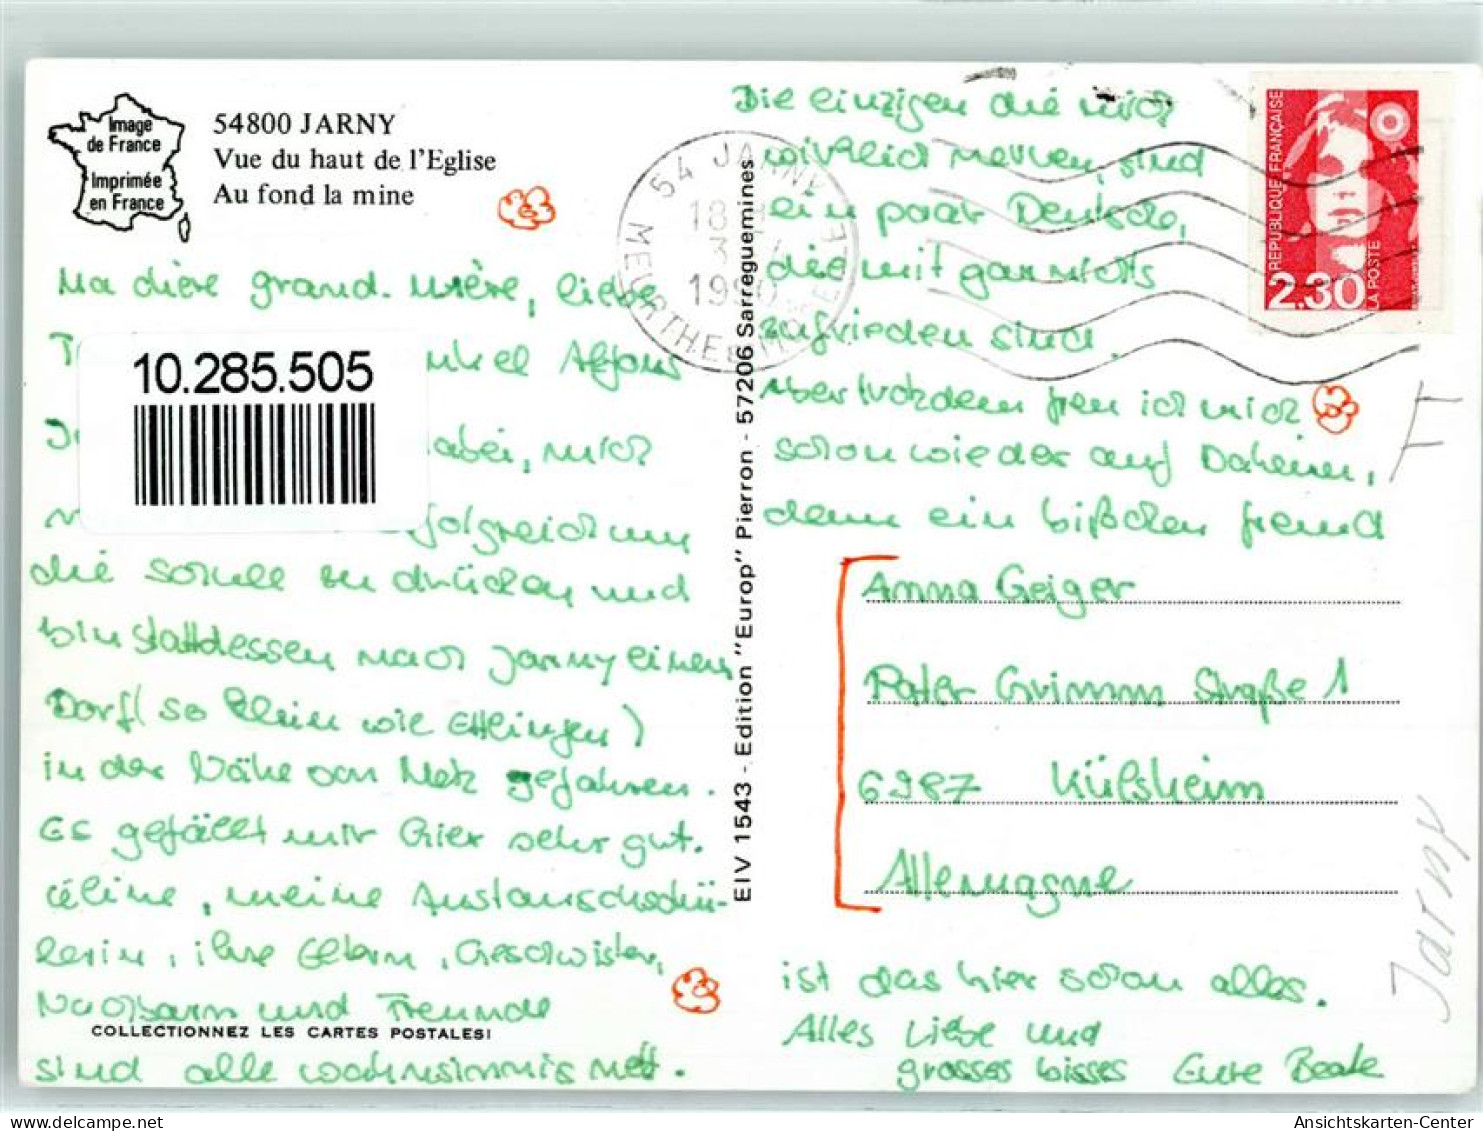 Image
de France
Imprimée
en France
54800 JARNY
Vue du haut de l'Eglise
Au fond la mine
Ma chère grand-mère, liebe
Onkel Alfons
10.285.505
dabei, mich
erfolgreich um
die Schule zu drücken und
bin stattdessen nach Jarny einem
Dorf (so klein wie Ettlingen)
in der Nähe von Metz gefahren.
Es gefällt mir hier sehr gut.
Céline, meine Austauschschü-
lerin, ihre Eltern, Geschwister,
Nachbarn und Freunde
COLLECTIONNEZ LES CARTES POSTALES!
sind alle wahnsinnig nett.
EIV 1543 - Edition "Europ" Pierron - 57206 Sarreguemines
54 JARNY
18 H
3
1990
MEURTHE ET MOSELLE
REPUBLIQUE FRANÇAISE
2.30
LA POSTE
Die einzigen die mich
wirklich nerven, sind
ein paar Deutsche,
die mit garnichts
zufrieden sind.
Aber trotzdem freu ich mich
schon wieder auf Daheim,
denn ein bißchen fremd
Anna Geiger
Pater Grimm Straße 1
6987 Külsheim
Allemagne
ist das hier schon alles.
Alles Liebe und
grosses bisses Eure Beate
F
Jarny
AnsichtskartenCenter